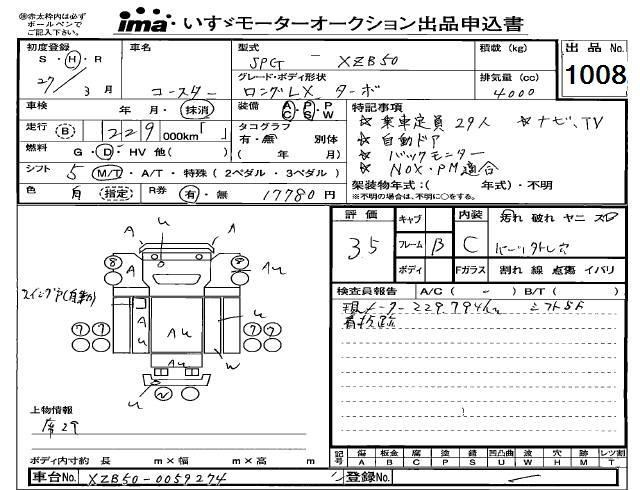 ㊟赤太枠内は必ず
ボールペンで
ご記入下さい。
ima いすゞモーターオークション出品申込書
初度登録
S・H・R
27/3月
車名
コースター
型式
SPG - XZB50
グレード・ボディ形状
ロングLX ターボ
積載 (kg)
排気量 (cc)
4000
出品No.
1008
車検
年 月・抹消
装備
A・P・P
C・S・W
走行 (B) 229 000km「 」
タコグラフ
有・無 別体
( 年 月)
燃料 G・D・HV 他( )
シフト 5 M/T・A/T・特殊(2ペダル・3ペダル)
色 白 (指定) R券 有・無 17780円
特記事項
☆ 乗車定員29人 ☆ ナビ、TV
☆ 自動ドア
☆ バックモニター
☆ NOX・PM適合
架装物年式:( 年式)・不明
※不明の場合は、不明に○をする。
評価
35
キャブ
フレーム B
ボディ
内装
C
Fガラス
汚れ 破れ ヤニ スレ
割れ 線 点傷 イバリ
検査員報告 A/C ( - ) B/T ( )
現メーター229.794km シフト5F
A
A
A
U
スイングドア(自動)
A
AU
U
W
AU
U
7 7
7 7
上物情報
席29
ボディ内寸約 長 m×幅 m×高 m
記号
傷 板金 腐 塗 錆 凹凸曲 波 穴 跡 レツ割
A B C P S U W H M T
車台No. XZB50-0059274
登録No.